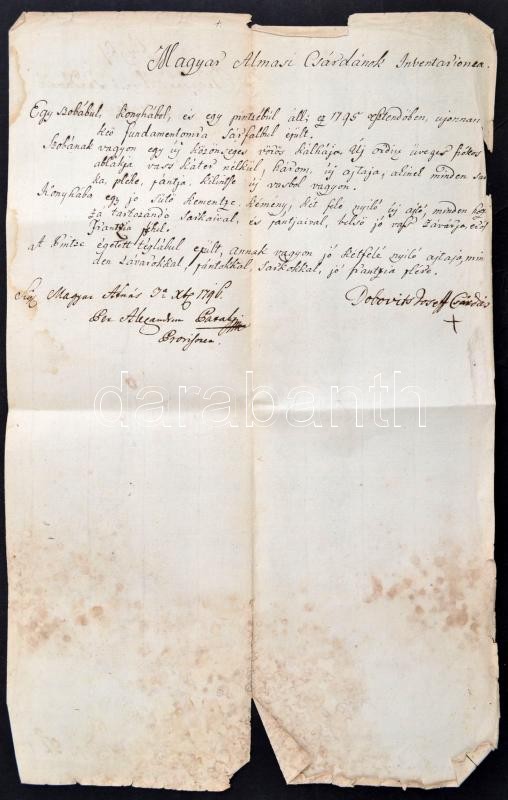 Magyar Almasi Csárdának Inventariuma.
Egy szobábul, konyhábol, és egy pintzébül áll; ez 1795 esztendőben, ujonnan
kő fundamentomra Sárfalbul épült.
Szobának vagyon egy új közönséges vörös kálhája. Új ordin üveges fiókos
ablakja vass káter nélkül, három, új ajtaja, minden
ka, pléhe, pántja, kilintse új vasbol vagyon.
Konyhába egy jó Sütő kementze. Kémény, két felé nyiló új ajtó, minden hoz-
zá tartozandó Sarkaival, és pántjaival, belső jó vass závarja,
frantzia
A Pintze égetett téglákul epült, annak vagyon jó kétfelé nyiló ajtaja, min
den závárokkal, pántokkal, Sarkokkal, jó frantzia
Sig. Magyar Almás 1796.
Dobovits Josef Csárdás
Per Alexandrum
+
Provisorem.
darabanth